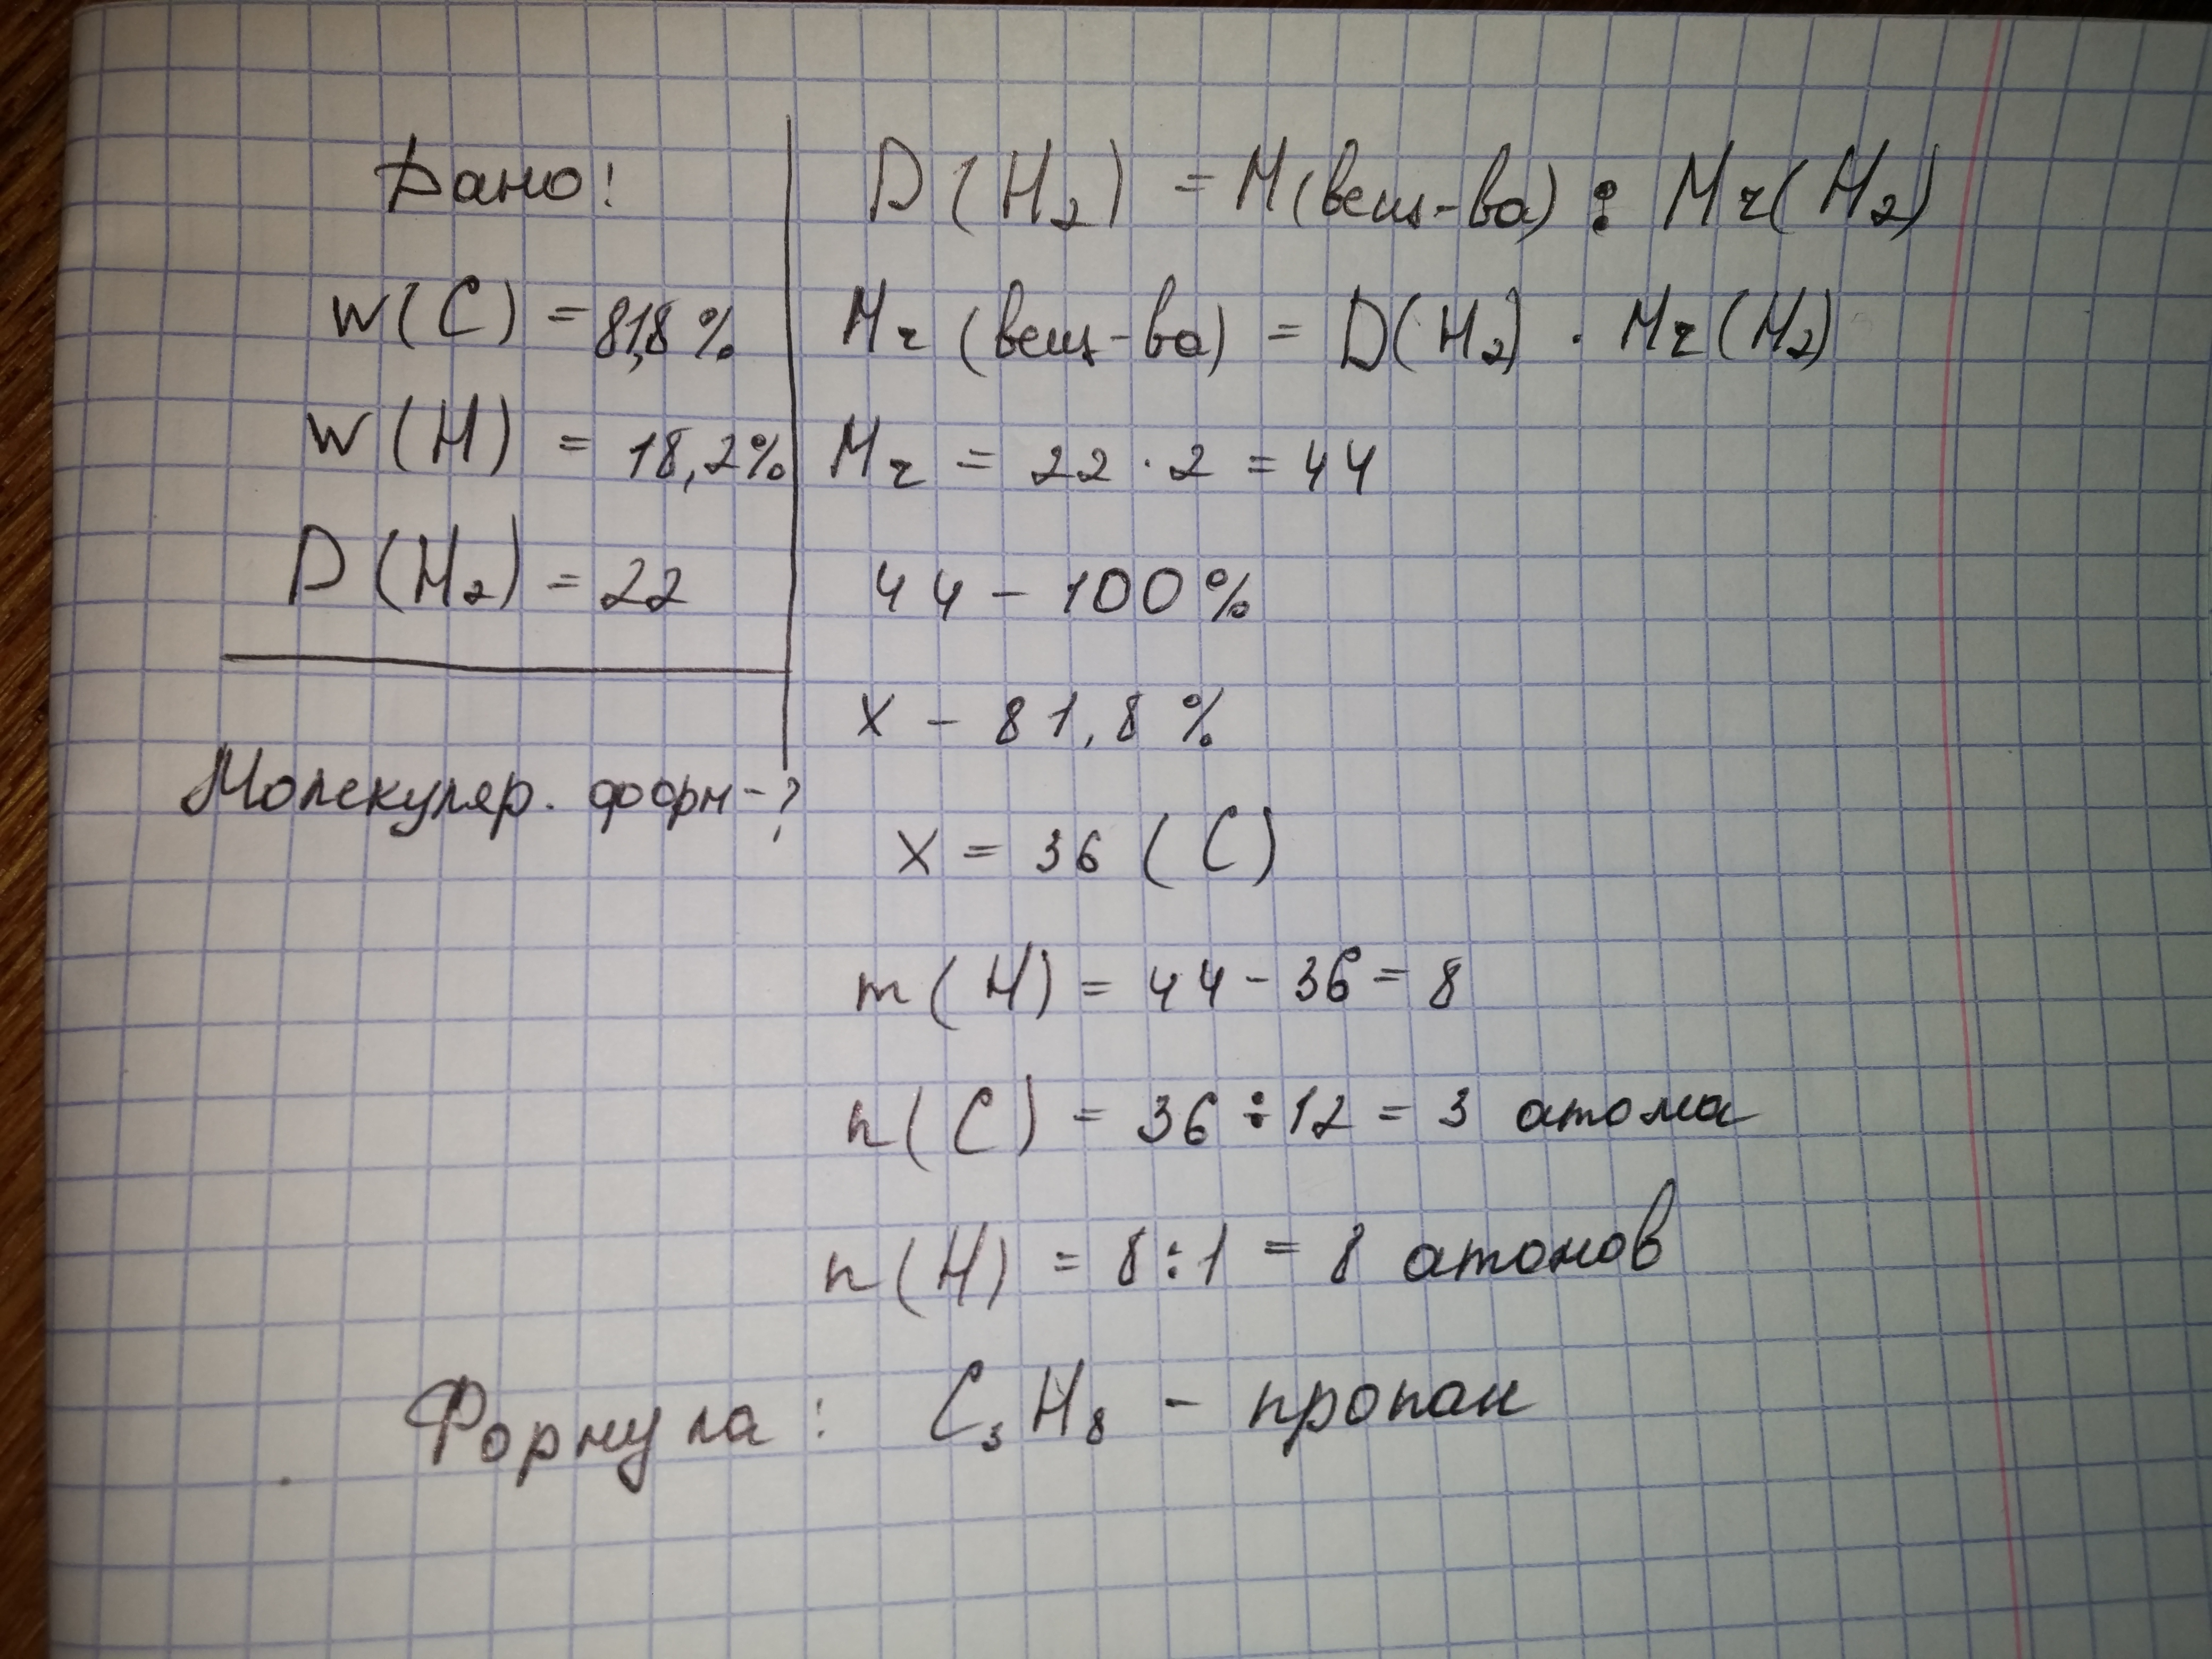 Дано!
W(C) = 81,8 %
W(H) = 18,2%
D(H₂) = 22
Молекуляр. форм-?
D(H₂) = M(вещ-ва) : Mr(H₂)
Mr (вещ-ва) = D(H₂) · Mr(H₂)
Mr = 22 · 2 = 44
44 - 100%
X - 81,8 %
X = 36 (C)
m(H) = 44 - 36 = 8
n(C) = 36 ÷ 12 = 3 атома
n(H) = 8:1 = 8 атомов
Формула: C₃H₈ - пропан